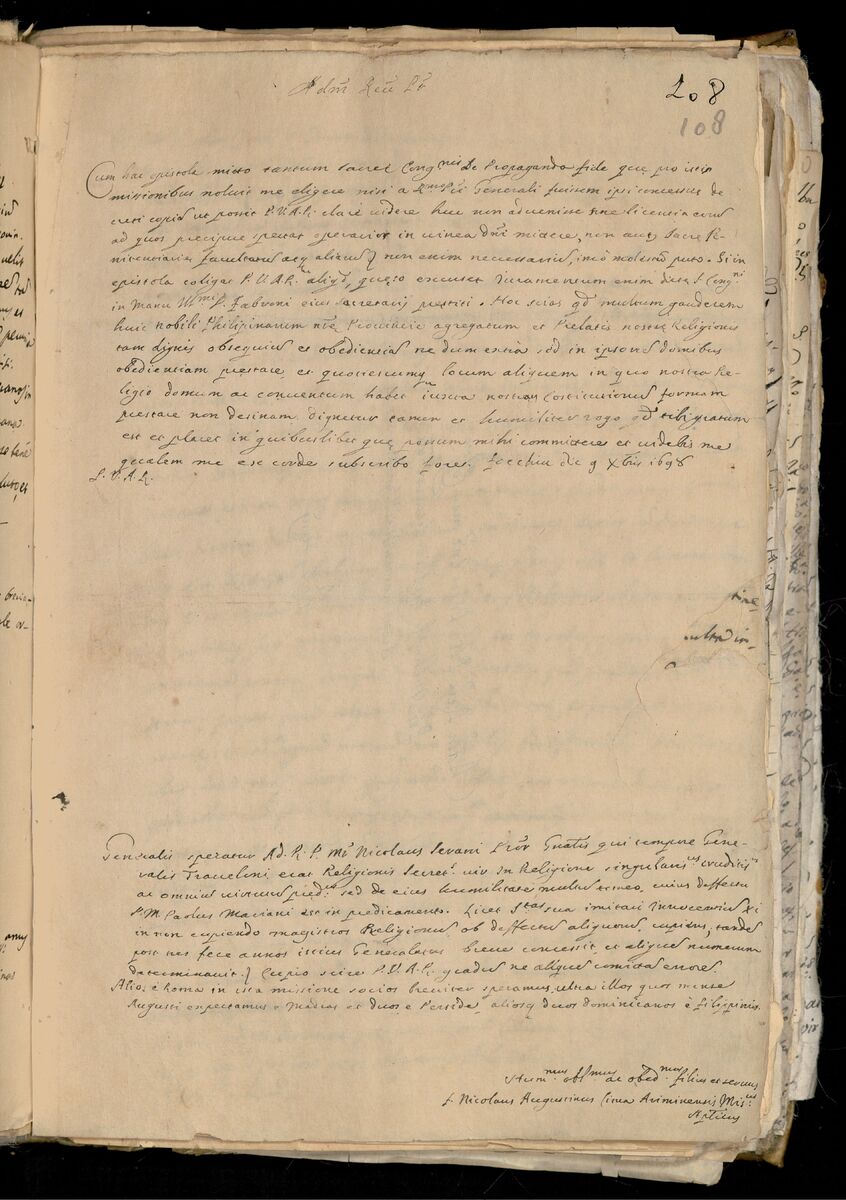 Adm Reu Pr
208
108
Cum hac epistola mitto tantum Sacrę Congnis De Propaganda fide quę pro istis
missionibus noluit me eligere nisi a Generali fuissem ipsi concessus de
creti copiã ut possit P.V.A.R. clarè videre huc non advenisse sine licentia eorũ
ad quos precipuè spectat operarios in vinea Dñi mittere, non autẽ Sacrę Pę
nitentiarię facultatũ necessariũ, imò molestũ puto. Si in
epistola coliget P.V.A.R. aliqd, quęso excuset Juramentum enim dictę S. Congni
in manu P. Fabroni eius Secretarij prestiti. Hoc scias qd multum gauderem
huic nobili Philipinarum nrę Provincię agregatum et Prelatis nostrę Religionis
tam dignis obsequiũ et obedientiã ne dum extra sed in ipsorũ domibus
obedientiam prestare, et quotiescumq locum aliquem in quo nostra Re-
ligio domum ac conventum habet iuxta nostrarũ Costitutionũ formam
prestare non desinam. Dignetur tamen et humiliter rogo qd tibi gratum
est et placet in quibuslibet quę possum mihi committere et videbis me
qualem me ex corde subscribo fore. die 9 Xbris 1698
P.V.A.R.
ultra in-
Generalis speratur Ad. R. P. Mr Nicolaus Serani qui tempore Gene-
ralis Travaloni, erat Religionis Secrets vir in Religione singularis eruditis
ac omniũ virtutũ sed de eius humilitate multũ timeo, cuius deffectu
P. M. Paulus est in predicamento. Licet Stas sua imitari Innocentiũ Xi
in non cupiendo magistros Religionũ ob deffectus aliquorũ, cupiens, tandẽ
post tres ferè annos istius Generalatus breve concessit, et aliquẽ numerum
determinavit. Cupio scire P.V.A.R. gradus ne aliquos comittã errores.
Alios è Roma in ista missione socios breviter speramus, ultra illos quos mense
Augusti expectamus è Madras et duos è Perside, aliosq duos dominicanos è filippinis.
Hummus oblmus ac obedmus filius et servus
f. Nicolaus Augustinus Cima Ariminensis Misus
Aplicus